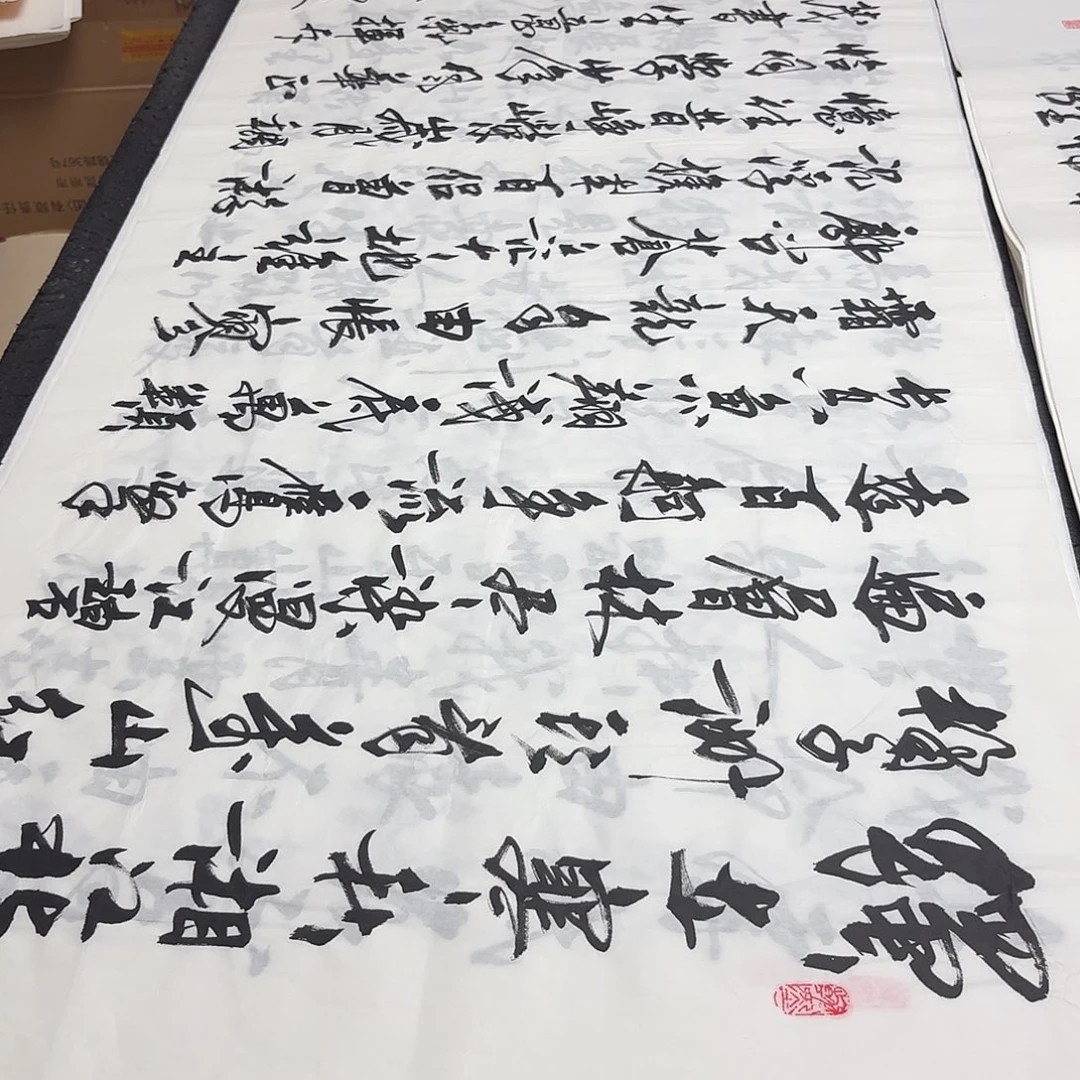 獨立寒秋湘江北
橘子洲頭看萬山紅
遍層林盡染漫江碧
透百舸爭流鷹擊
長空魚翔淺底萬類
霜天競自由悵寥
廓問蒼茫大地誰主
沉浮攜來百侶曾游
憶往昔崢嶸歲月稠
恰同學少年風華正
茂書生意氣揮斥